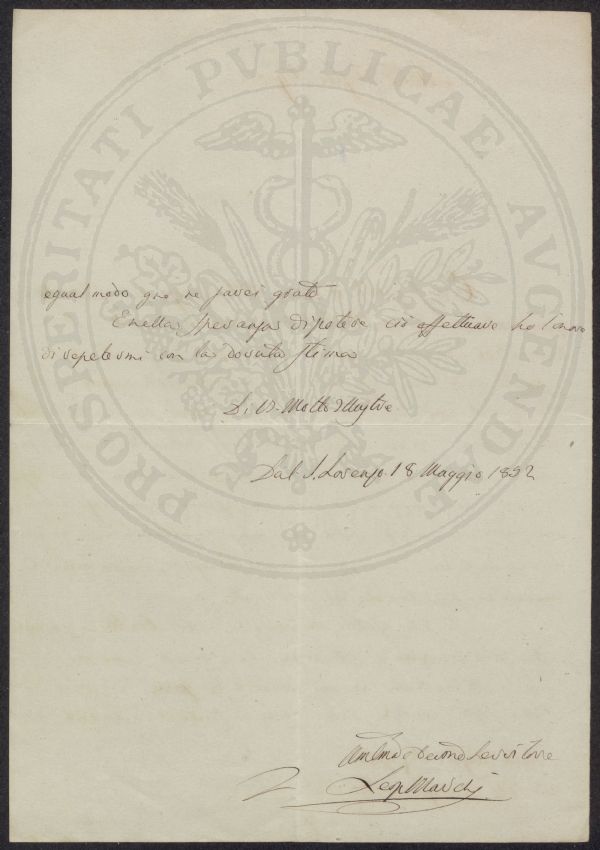 PROSPERITATI PVBLICAE AVGENDAE
egual modo gne ne sarei grato
E nella speranza di potere ciò effettuare ho l'onore
di repetermi con la dovuta stima
Di V. Molto Illustre
Dal S. Lorenzo 18 Maggio 1852
Servitore
Leop Marchi